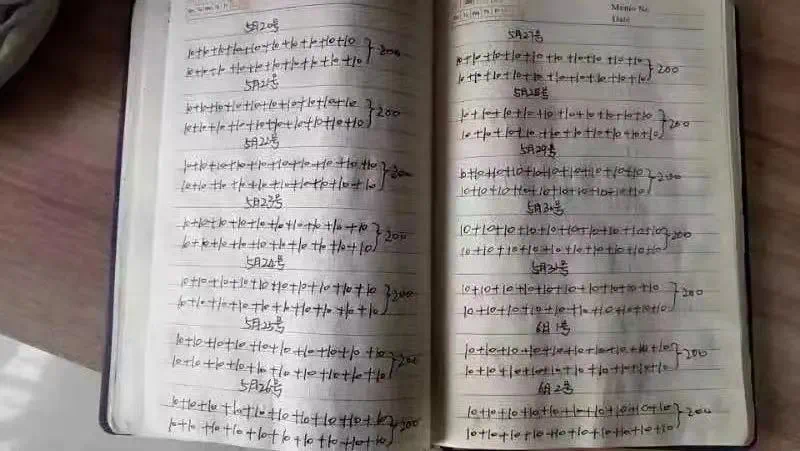 5月20号
10+10+10+10+10+10+10+10+10+10
10+10+10+10+10+10+10+10+10+10 }200
5月21号
10+10+10+10+10+10+10+10+10+10
10+10+10+10+10+10+10+10+10+10 }200
5月22号
10+10+10+10+10+10+10+10+10+10
10+10+10+10+10+10+10+10+10+10 }200
5月23号
10+10+10+10+10+10+10+10+10+10
10+10+10+10+10+10+10+10+10+10 }200
5月24号
10+10+10+10+10+10+10+10+10+10
10+10+10+10+10+10+10+10+10+10 }200
5月25号
10+10+10+10+10+10+10+10+10+10
10+10+10+10+10+10+10+10+10+10 }200
5月26号
10+10+10+10+10+10+10+10+10+10
10+10+10+10+10+10+10+10+10+10 }200
Memo No
Date
5月27号
10+10+10+10+10+10+10+10+10+10
10+10+10+10+10+10+10+10+10+10 }200
5月28号
10+10+10+10+10+10+10+10+10+10
10+10+10+10+10+10+10+10+10+10 }200
5月29号
10+10+10+10+10+10+10+10+10+10
10+10+10+10+10+10+10+10+10+10 }200
5月30号
10+10+10+10+10+10+10+10+10+10
10+10+10+10+10+10+10+10+10+10 }200
5月31号
10+10+10+10+10+10+10+10+10+10
10+10+10+10+10+10+10+10+10+10 }200
6月1号
10+10+10+10+10+10+10+10+10+10
10+10+10+10+10+10+10+10+10+10 }200
6月2号
10+10+10+10+10+10+10+10+10+10
10+10+10+10+10+10+10+10+10+10 }200